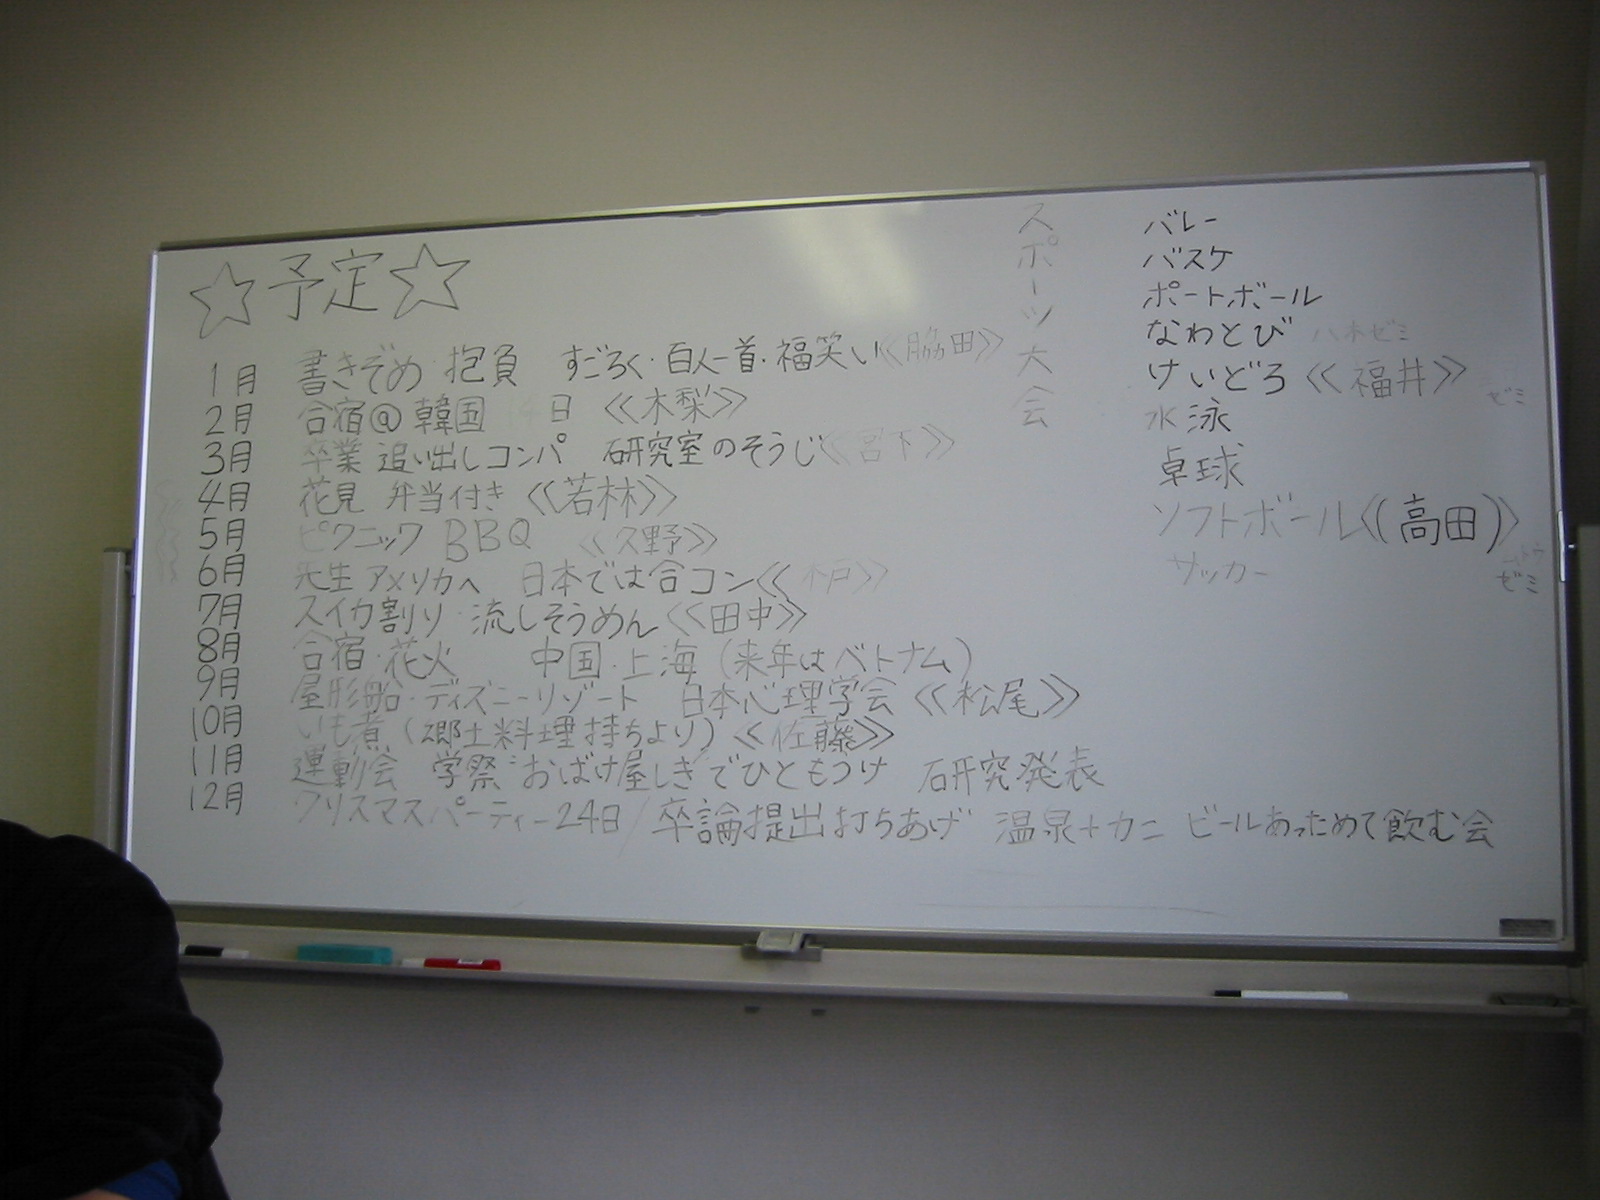 ☆予定☆
1月 書きぞめ・抱負 すごろく・百人一首・福笑い《脇田》
2月 合宿@韓国 日 《木梨》
3月 卒業 追い出しコンパ 研究室のそうじ《宮下》
4月 花見 弁当付き 《若林》
5月 ピクニック BBQ 《久野》
6月 先生アメリカへ 日本では合コン《木戸》
7月 スイカ割り・流しそうめん《田中》
8月 合宿・花火 中国・上海(来年はベトナム)
9月 屋形船・ディズニーリゾート 日本心理学会《松尾》
10月 いも煮(郷土料理持ちより)《佐藤》
11月 運動会 学祭:おばけ屋しきでひともうけ 研究発表
12月 クリスマスパーティー24日/卒論提出打ちあげ 温泉+カニ ビールあっためて飲む会
スポーツ大会
バレー
バスケ
ポートボール
なわとび ハホゼミ
けいどろ《福井》
ゼミ
水泳
卓球
ソフトボール《高田》
サッカー
ゼミ